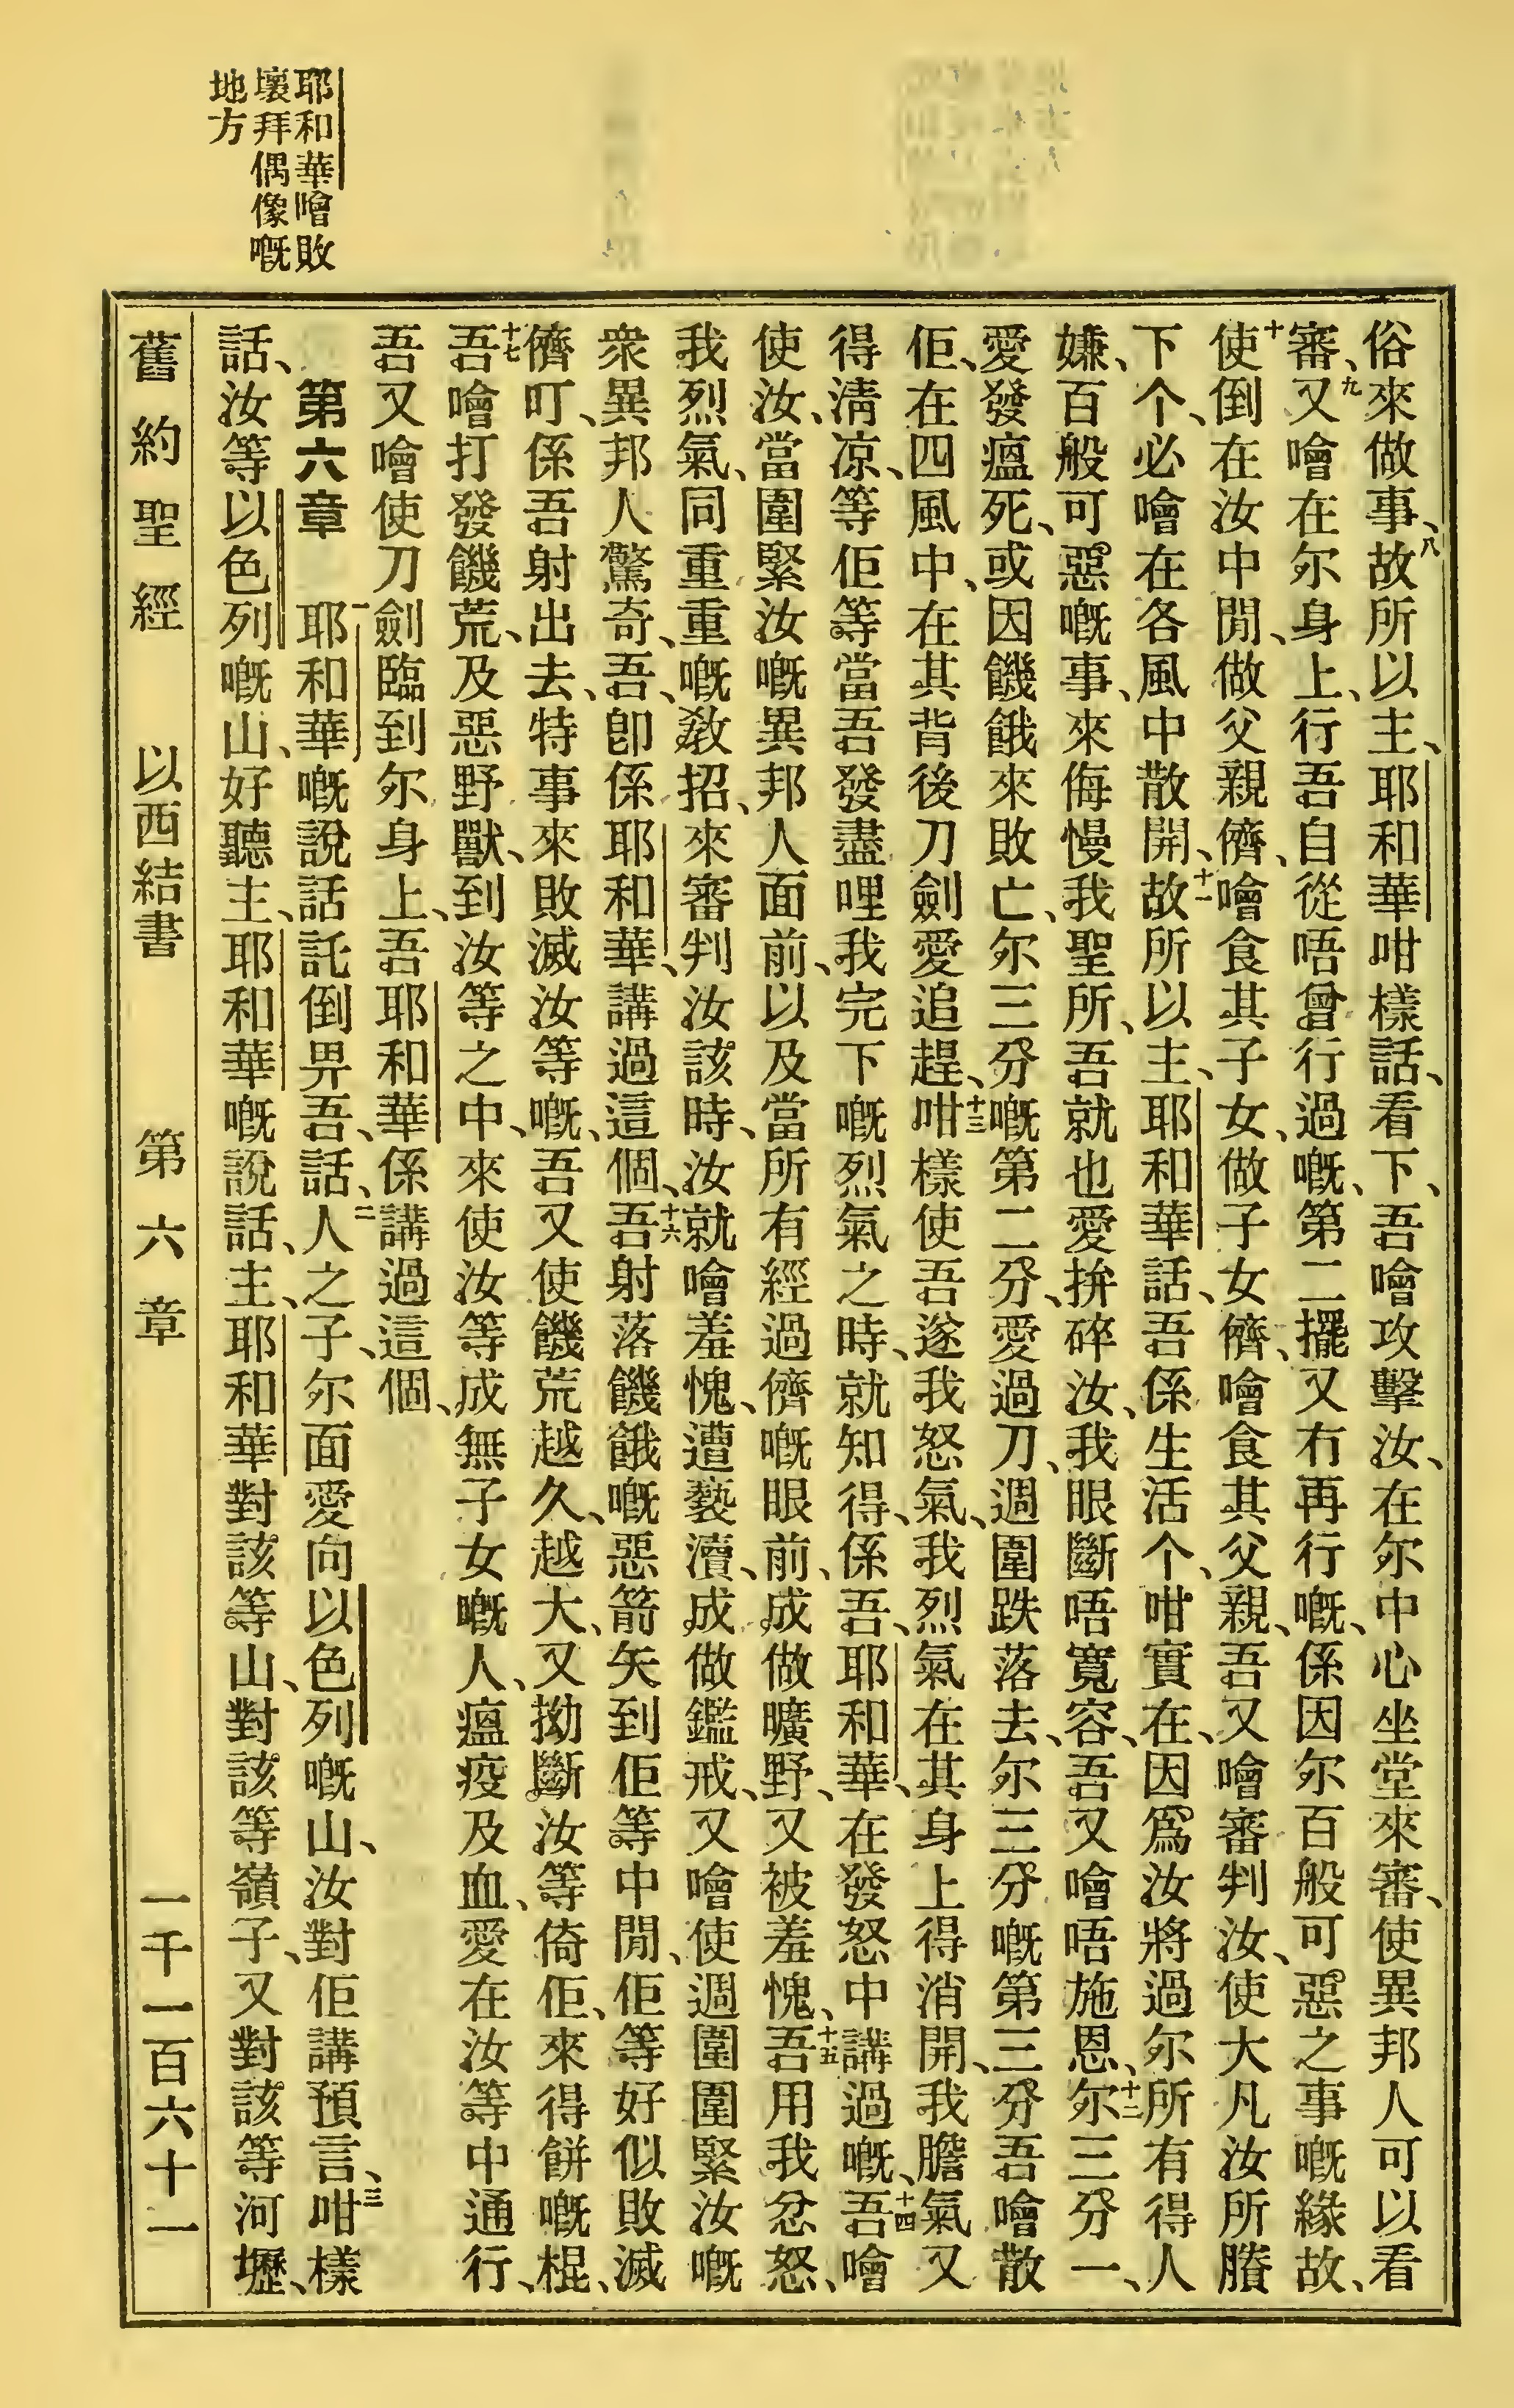 耶和華噲敗
壞拜偶像嘅
地方
俗來做事、八故所以主、耶和華咁樣話、看下、吾噲攻擊汝、在尔中心坐堂來審、使異邦人可以看
審、九又噲在尔身上、行吾自從唔曾行過嘅、第二擺又冇再行嘅、係因尔百般可惡之事嘅緣故、
十使倒在汝中閒、做父親儕、噲食其子女、做子女儕、噲食其父親、吾又噲審判汝、使大凡汝所賸
下个、必噲在各風中散開、十一故所以主、耶和華話、吾係生活个、咁實在、因爲汝將過尔所有得人
嫌、百般可惡嘅事、來侮慢我聖所、吾就也愛拚碎汝、我眼斷唔寬容、吾又噲唔施恩、十二尔三分一、
愛發瘟死、或因饑餓來敗亡、尔三分嘅第二分、愛過刀、週圍跌落去、尔三分嘅第三分、吾噲散
佢、在四風中、在其背後刀劍愛追趕、十三咁樣使吾遂我怒氣、我烈氣在其身上得消開、我膽氣又
得淸凉、等佢等當吾發盡哩我完下嘅烈氣之時、就知得、係吾、耶和華、在發怒中講過嘅、十四吾噲
使汝、當圍緊汝嘅異邦人面前、以及當所有經過儕嘅眼前、成做曠野、又被羞愧、十五吾用我忿怒、
我烈氣、同重重嘅敎招、來審判汝該時、汝就噲羞愧、遭褻瀆、成做鑑戒、又噲使週圍圍緊汝嘅
衆異邦人驚奇、吾、卽係耶和華、講過這個、十六吾射落饑餓嘅惡箭矢到佢等中閒、佢等好似敗滅
儕叮、係吾射出去、特事來敗滅汝等嘅、吾又使饑荒越久、越大、又拗斷汝等倚佢、來得餅嘅棍、
十七吾噲打發饑荒、及惡野獸、到汝等之中、來使汝等成無子女嘅人、瘟疫及血、愛在汝等中通行、
吾又噲使刀劍臨到尔身上、吾耶和華係講過這個、
第六章　一耶和華嘅說話託倒畀吾、話、二人之子、尔面愛向以色列嘅山、汝對佢講預言、三咁樣
話、汝等以色列嘅山、好聽主、耶和華嘅說話、主、耶和華對該等山、對該等嶺子、又對該等河壢、
舊約聖經　以西結書　第六章　一千一百六十一